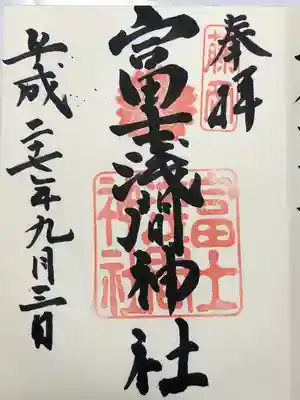 奉拝
富士浅間神社
平成二十七年九月三日
富士
浅間
神社